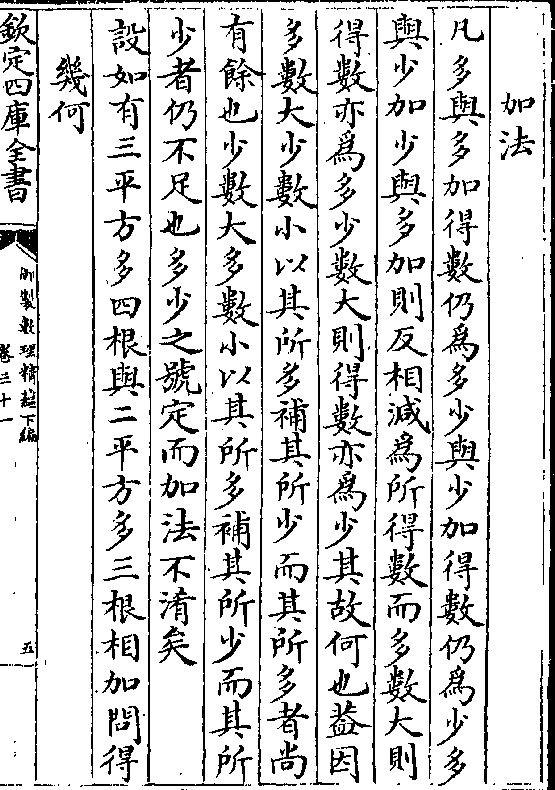 加法
凡多與多加得數仍為多少與少加得數仍為少多
與少加少與多加則反相減為所得數而多數大則
得數亦為多少數大則得數亦為少其故何也葢因
多數大少數小以其所多補其所少而其所多者尚
有餘也少數大多數小以其所多補其所少而其所
少者仍不足也多少之號定而加法不淆矣
設如有三平方多四根與二平方多三根相加問得
幾何
欽定四庫全書
御製數理精蘊下編
卷三十一
五